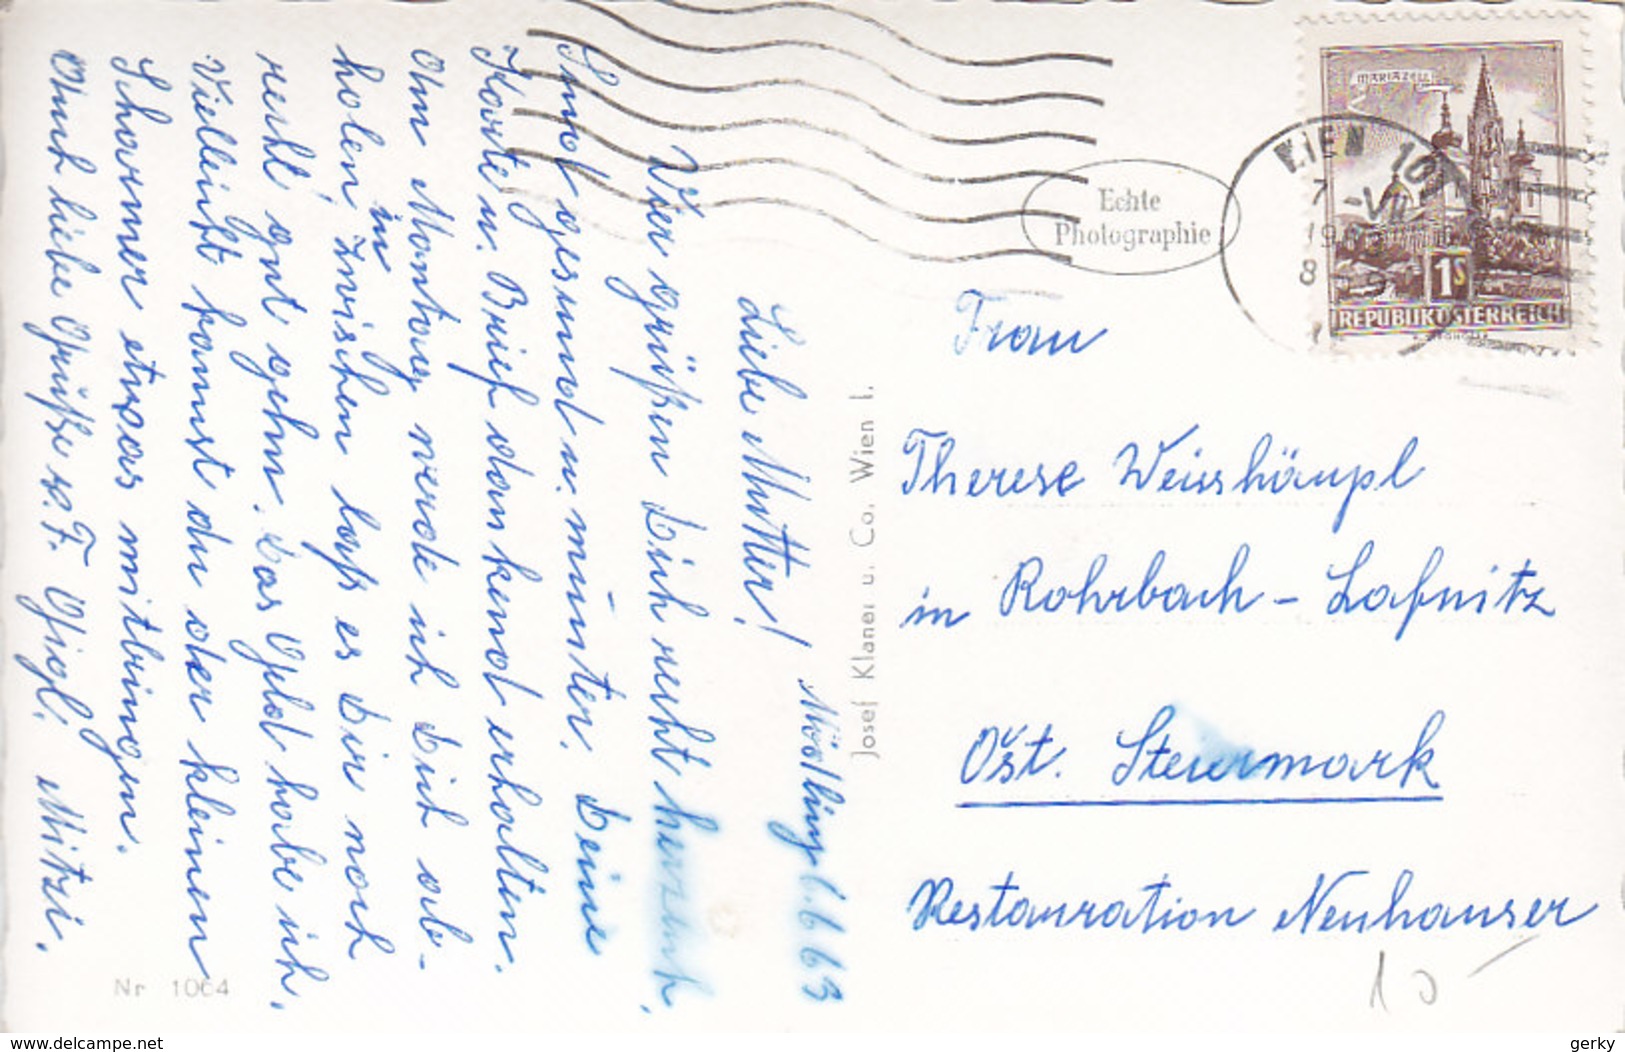 Mödling 6.6.63
Liebe Mutter!
Wir grüßen Dich recht herzlich,
Sind gesund u. munter. Deine
Karte u. Brief dankend erhalten.
Am Montag werde ich Dich ab-
holen, in zwischen laß es Dir noch
recht gut gehn. Das Geld habe ich,
Vielleicht kannst du der kleinen
Schwarmer etwas mitbringen.
Auch liebe Grüße v. F. Gigl. Mitzi.
Nr 1064
Josef Klaner u. Co. Wien I.
Echte
Photographie
MARIAZELL
1S
REPUBLIK ÖSTERREICH
WIEN 10
7 -VII
8
Frau
Therese Weisshäupl
in Rohrbach - Lafnitz
Ost. Steiermark
Restauration Neuhauser
10 -
www.delcampe.net
gerky